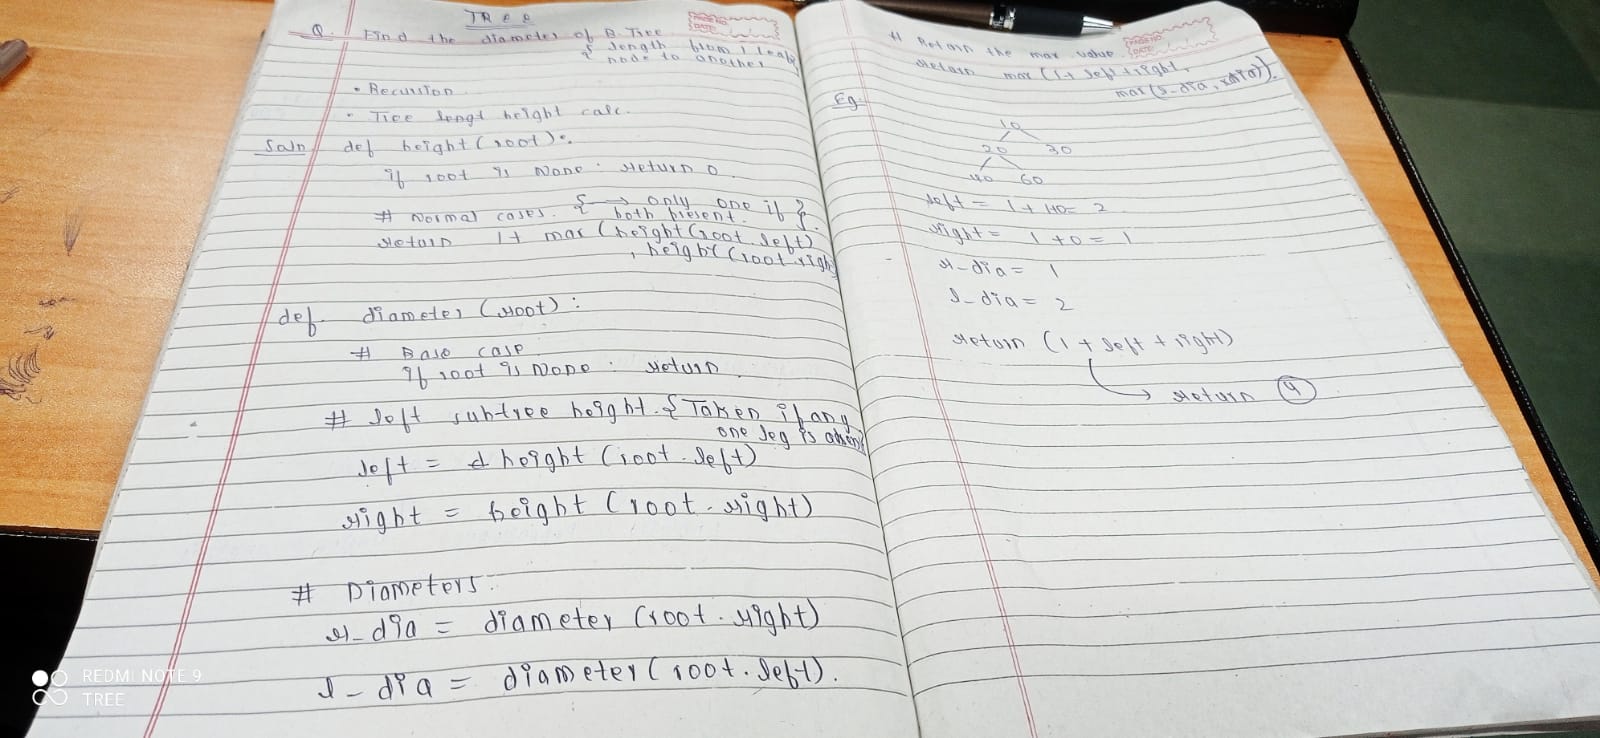 TREE
PAGE NO.
DATE:
Q. Find the diameter of B. Tree
{ length from 1 leaf
node to another
• Recursion.
• Tree height calc.
Soln def height (root):
if root is None : return 0.
# Normal cases. { → only one if }
both present.
return 1+ max (height (root.left)
, height (root.right
def diameter (root):
# Base case
if root is None : return.
# left subtree height. { Taken if any
one leg is
left = height (root.left)
right = height (root.right)
# Diameters.
r-dia = diameter (root.right)
l-dia = diameter (root.left).
# Return the max value.
PAGE NO.
DATE:
return max (1+ left + right,
max (l-dia, r-dia)).
Eg.
10
20 30
40 60
left = 1 + 1+0 = 2
right = 1 + 0 = 1
r-dia = 1
l-dia = 2
return (1 + left + right)
return 4
REDMI NOTE 9
TREE